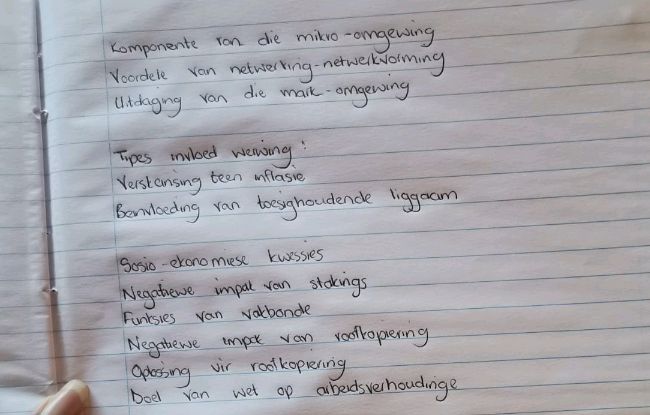 Komponente van die mikro-omgewing
Voordele van netwerking-netwerkvorming
Uitdaging van die mark-omgewing
Tipes invloed werwing:
Verskansing teen inflasie
Beinvloeding van toesighoudende liggaam
Sosio-ekonomiese kwessies
Negatiewe impak van stakings
Funksies van vakbonde
Negatiewe impak van roofkopiering
Oplossing vir roofkopiering
Doel van wet op arbeidsverhoudinge